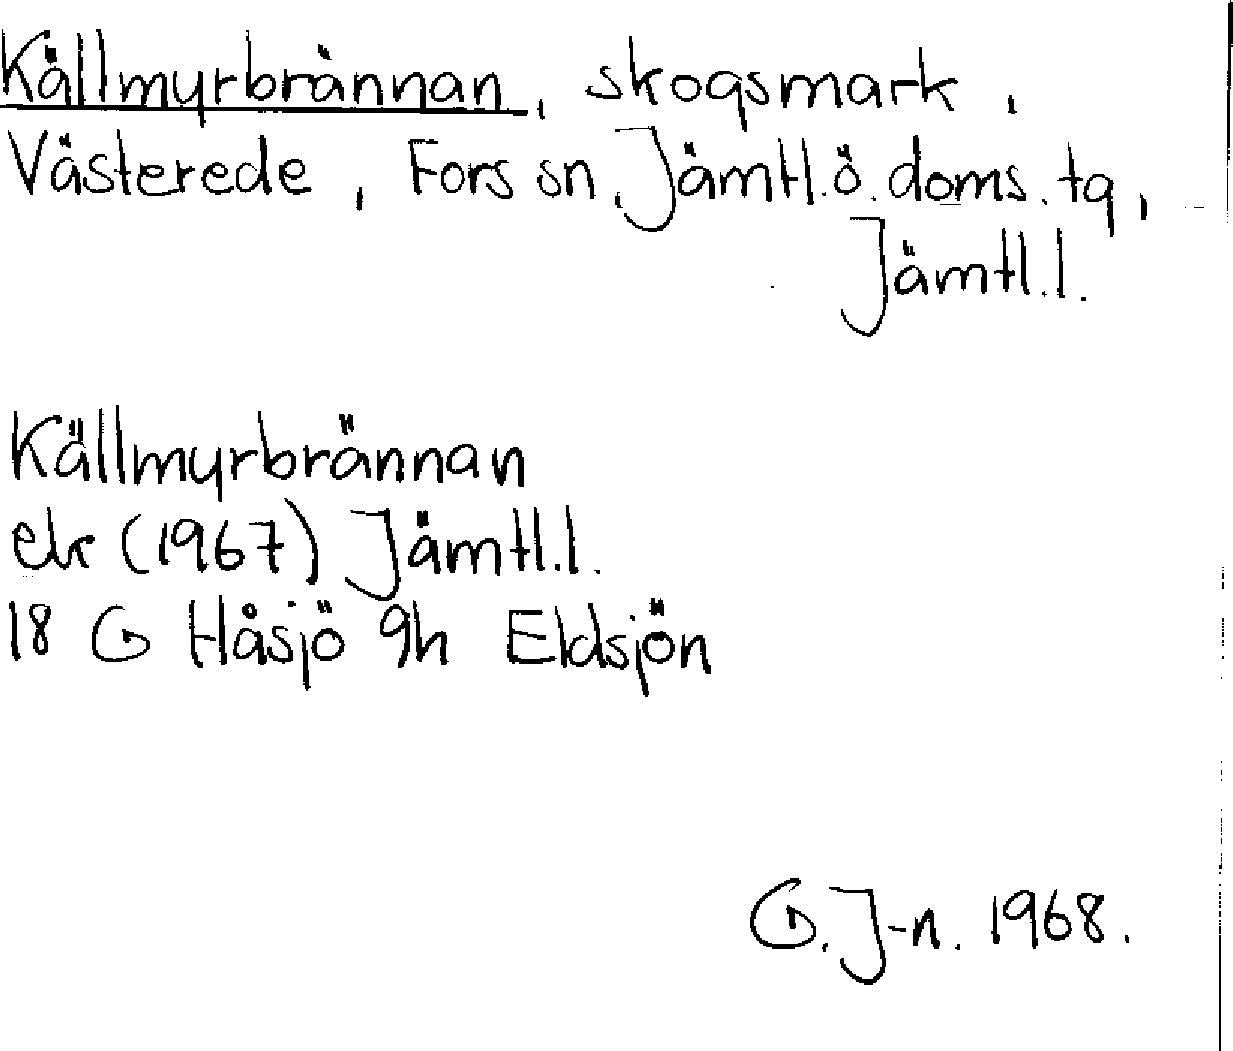 Källmyrbrännan, skogsmark,
Västerede, Fors sn, Jämtl.ö.doms.tg,
Jämtl.l.
Källmyrbrännan
ek (1967) Jämtl.l.
18 G Håsjö 9h Eldsjön
G.J-n. 1968.